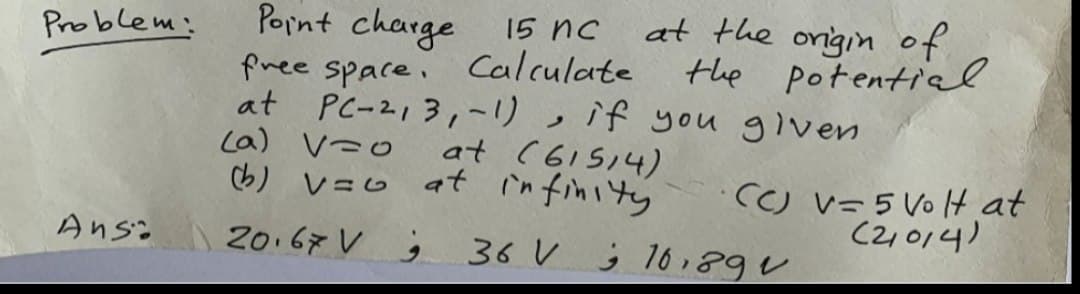 Problem: Point charge 15 nC at the origin of
free space. Calculate the potential
at P(-2,3,-1), if you given
(a) V=0 at (6,5,4)
(b) V=0 at infinity (c) V=5 Volt at
(2,0,4)
Ans: 20.67 V ; 36 V ; 10.89 V